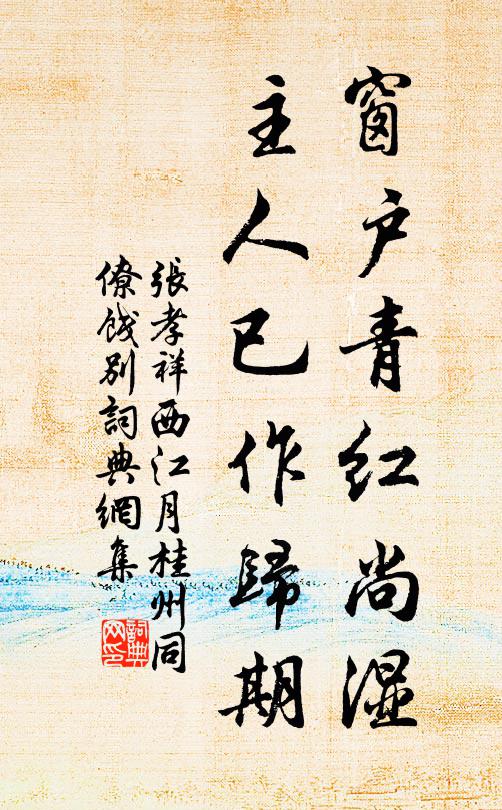 窗户青红尚湿
主人已作歸期
張孝祥西江月桂州同
僚餞别詞典網集
詞典網印